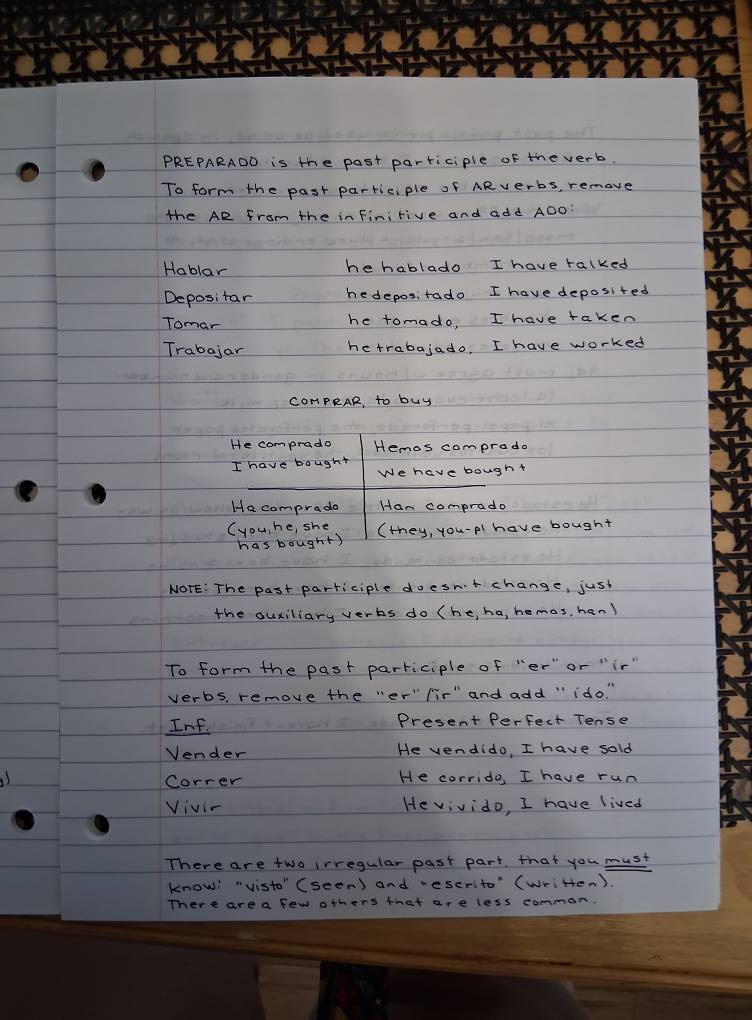 PREPARADO is the past participle of the verb.
To form the past participle of AR verbs, remove
the AR from the infinitive and add ADO:
Hablar he hablado I have talked
Depositar he depositado I have deposited
Tomar he tomado, I have taken
Trabajar he trabajado, I have worked
COMPRAR, to buy
He comprado Hemos comprado
I have bought We have bought
Ha comprado Han comprado
(you, he, she (they, you-pl have bought
has bought)
NOTE: The past participle doesn't change, just
the auxiliary verbs do (he, ha, hemos, han)
To form the past participle of "er" or "ir"
verbs, remove the "er"/"ir" and add "ido."
Inf. Present Perfect Tense
Vender He vendido, I have sold
Correr He corrido, I have run
Vivir He vivido, I have lived
There are two irregular past part. that you must
know: "visto" (seen) and "escrito" (written).
There are a few others that are less common.